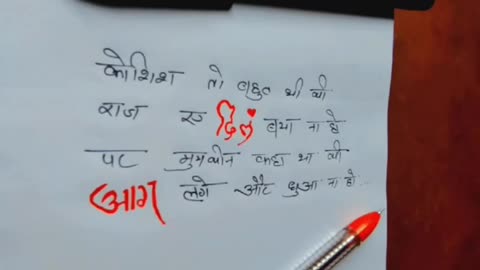 कोशिश तो बहुत थी की
राज ए दिल बया ना हो
पर मुमकीन कहा था की
आग लगे और धुआ ना हो...